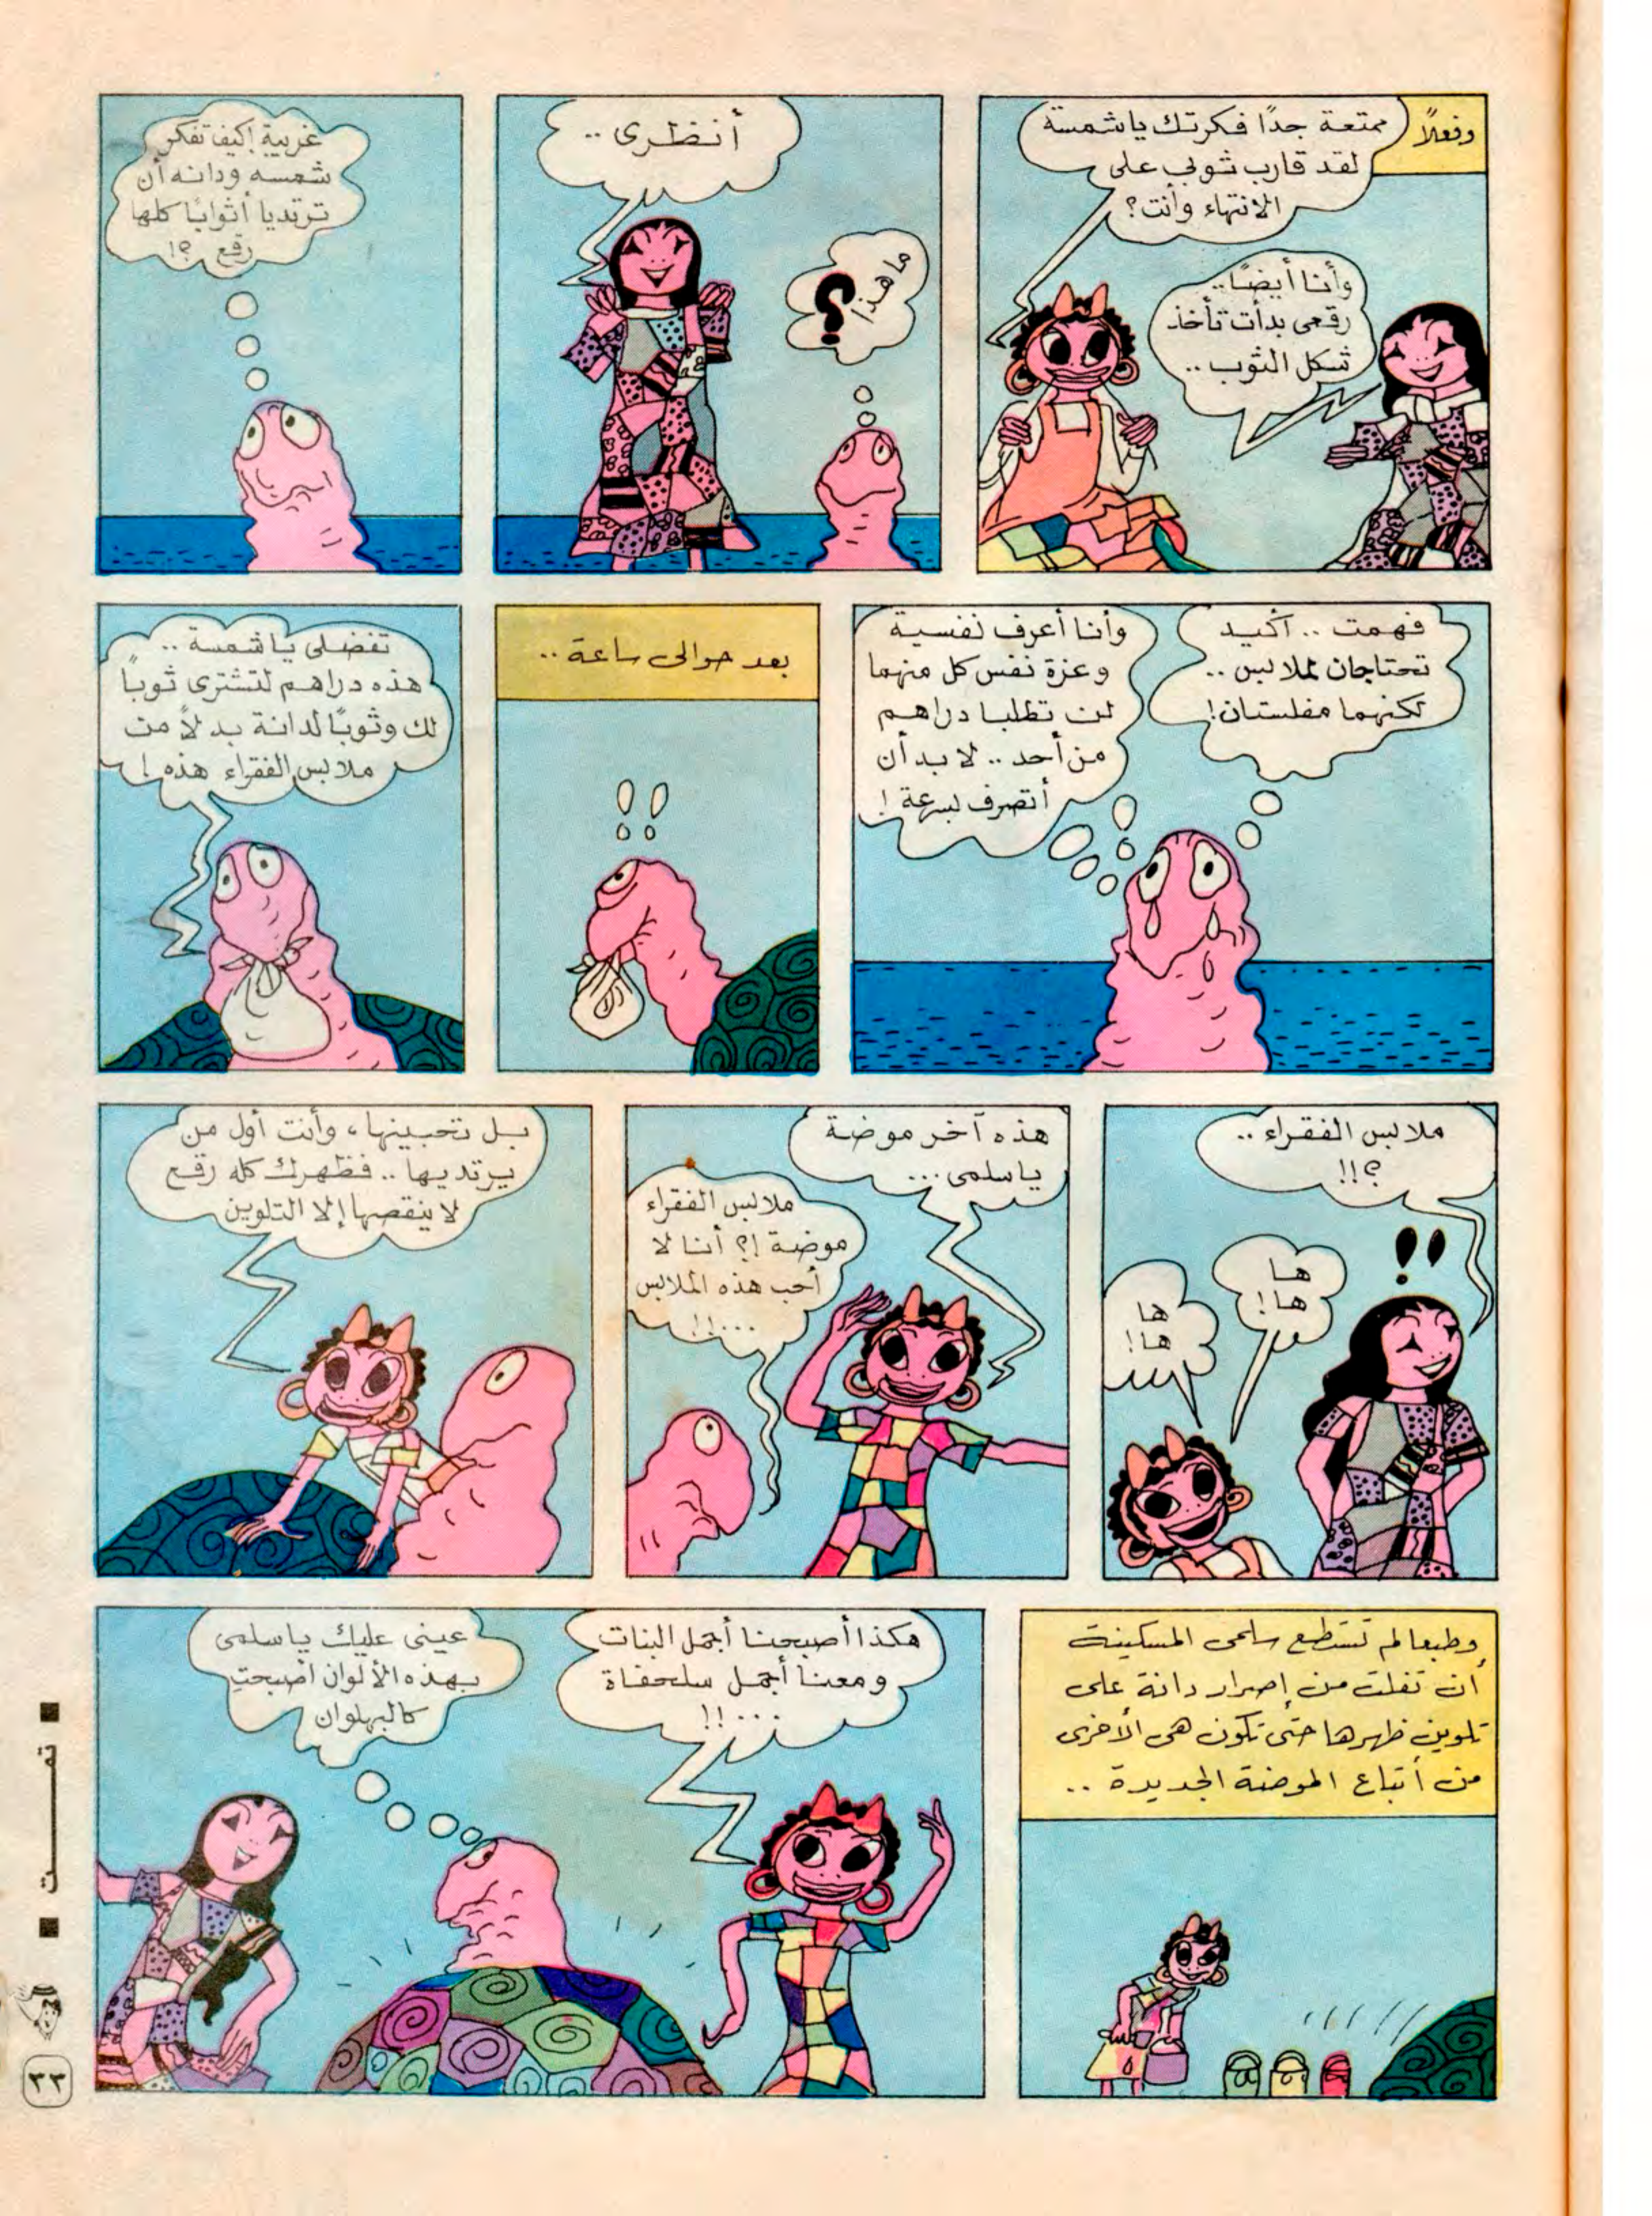 وفعلاً
ممتعة جدًا فكرتك ياشمسة
لقد قارب ثوبي على
الانتهاء وأنت؟
وأنا أيضًا..
رقعى بدأت تأخذ
شكل الثوب..
أنظرى..
ما هذا
؟
غريبة! كيف تفكر
شمسه ودانه أن
ترتديا أثوابًا كلها
رقع ؟!
فهمت .. أكيد
تحتاجان لملابس ..
لكنهما مفلستان!
وأنا أعرف نفسية
وعزة نفس كل منهما
لن تطلبا دراهم
من أحد .. لا بد أن
أتصرف بسرعة !
بعد حوالى ساعة ..
!!
تفضلى ياشمسة ..
هذه دراهم لتشترى ثوبًا
لك وثوبًا لدانة بدلاً من
ملابس الفقراء هذه !
ملابس الفقراء ..
؟!!
!!
ها
ها!
ها
ها!
هذه آخر موضة
ياسلمى ...
ملابس الفقراء
موضة !؟ أنا لا
أحب هذه الملابس
...!!
بل تحبينها، وأنت أول من
يرتديها .. فظهرك كله رقع
لا ينقصها إلا التلوين
وطبعا لم تستطع سلمى المسكينة
أن تفلت من إصرار دانة على
تلوين ظهرها حتى تكون هى الأخرى
من أتباع الموضة الجديدة ..
هكذا أصبحنا أجمل البنات
ومعنا أجمل سلحفاة
...!!
عينى عليك ياسلمى
بهذه الألوان أصبحتِ
كالبهلوان
تمت
٣٣